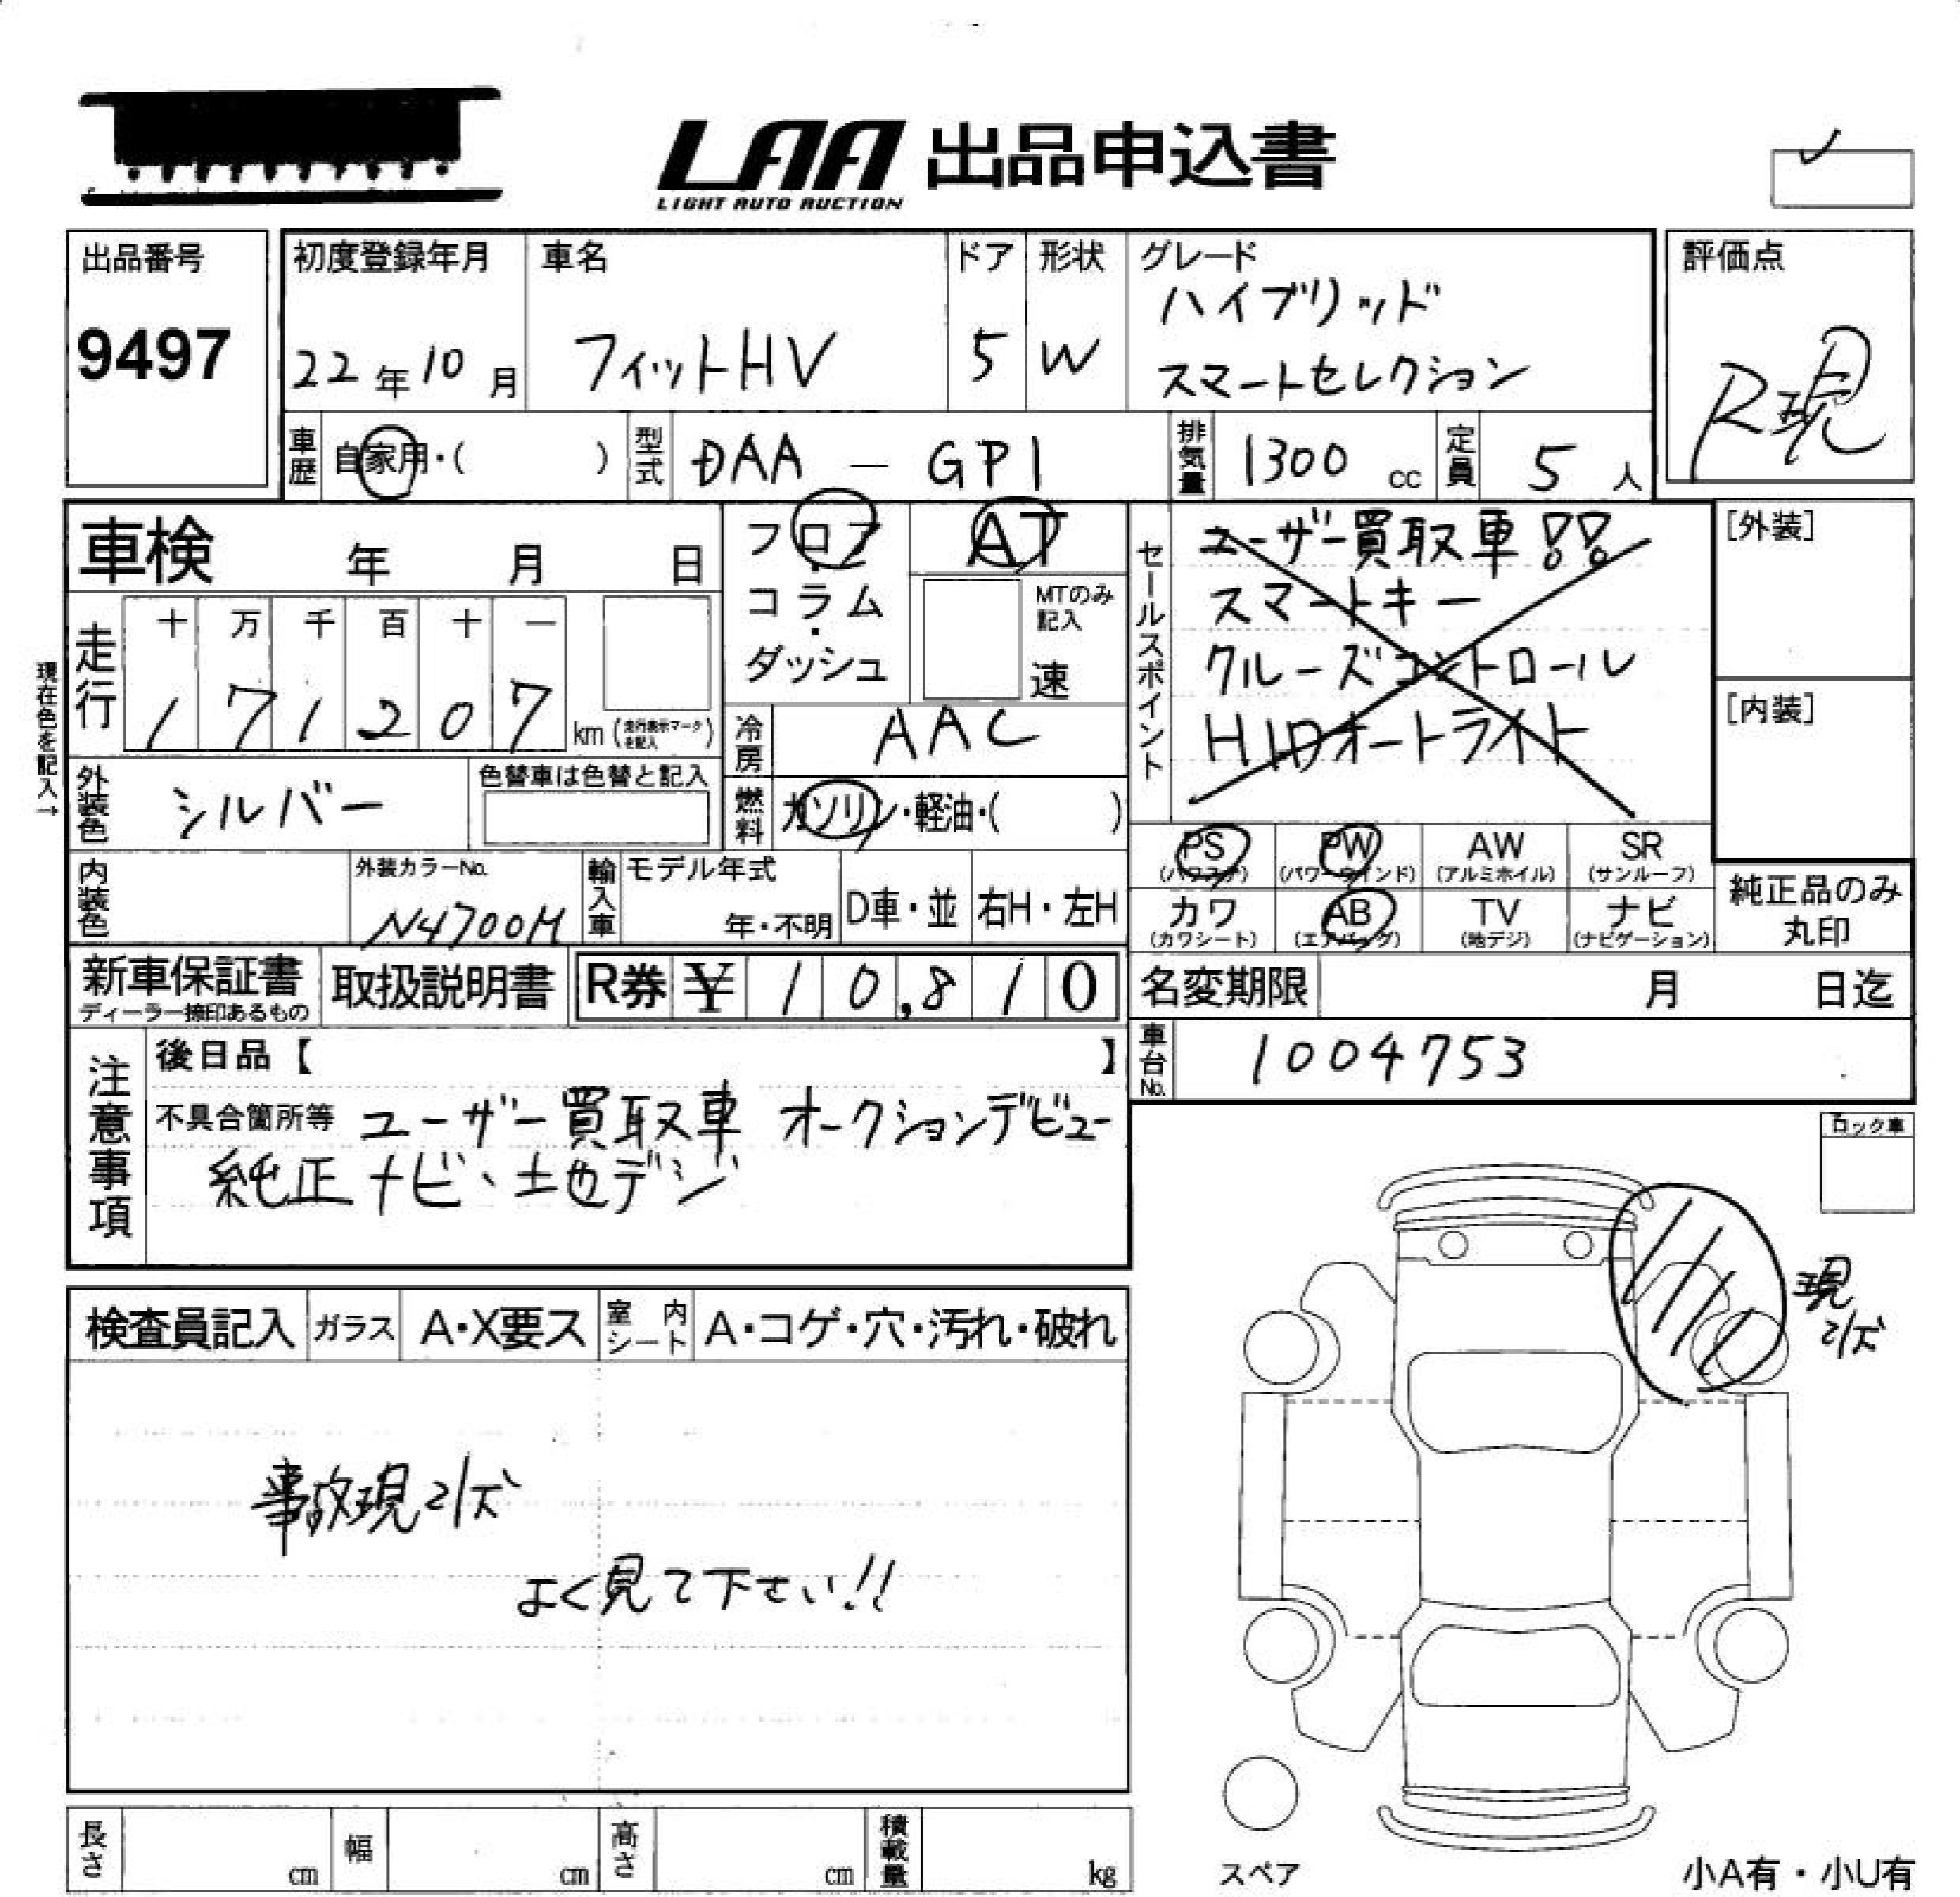 LAA 出品申込書
LIGHT AUTO AUCTION
出品番号
9497
初度登録年月
22年10月
車名
フィットHV
ドア
5
形状
W
グレード
ハイブリッド
スマートセレクション
評価点
R現
車歴
自家用・( )
型式
DAA - GP1
排気量
1300 cc
定員
5 人
車検 年 月 日
フロア
・
コラム
・
ダッシュ
AT
MTのみ
記入
速
セールスポイント
ユーザー買取車!!
スマートキー
クルーズコントロール
HIDオートライト
[外装]
[内装]
現在色を記入→
走行
十 万 千 百 十 一
1 7 1 2 0 7
km (走行表示マークを記入)
冷房
AAC
外装色
シルバー
色替車は色替と記入
燃料
ガソリン・軽油・( )
PS
(パワステ)
PW
(パワーウインド)
AW
(アルミホイル)
SR
(サンルーフ)
カワ
(カワシート)
AB
(エアバッグ)
TV
(地デジ)
ナビ
(ナビゲーション)
純正品のみ
丸印
内装色
外装カラーNo.
N4700M
輸入車
モデル年式
年・不明
D車・並
右H・左H
新車保証書
ディーラー捺印あるもの
取扱説明書
R券 ¥ 10,810
名変期限 月 日迄
車台No.
1004753
注意事項
後日品【 】
不具合箇所等 ユーザー買取車 オークションデビュー
純正ナビ、地デジ
ロック車
現
状
検査員記入
ガラス
A・X要ス
室内シート
A・コゲ・穴・汚れ・破れ
事故現状
よく見て下さい!!
長さ cm
幅 cm
高さ cm
積載量 kg
スペア
小A有・小U有